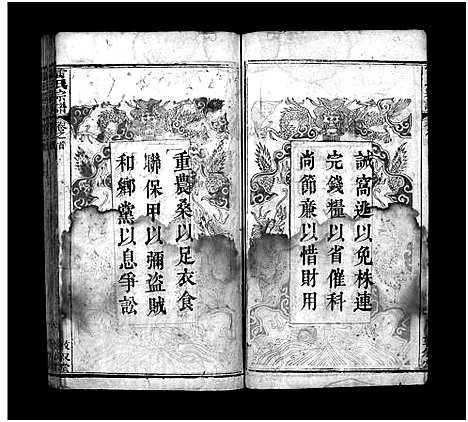 誡窩逃以免株連
完錢糧以省催科
尚節亷以惜財用
重農桑以足衣食
聯保甲以彌盜賊
和鄉黨以息爭訟